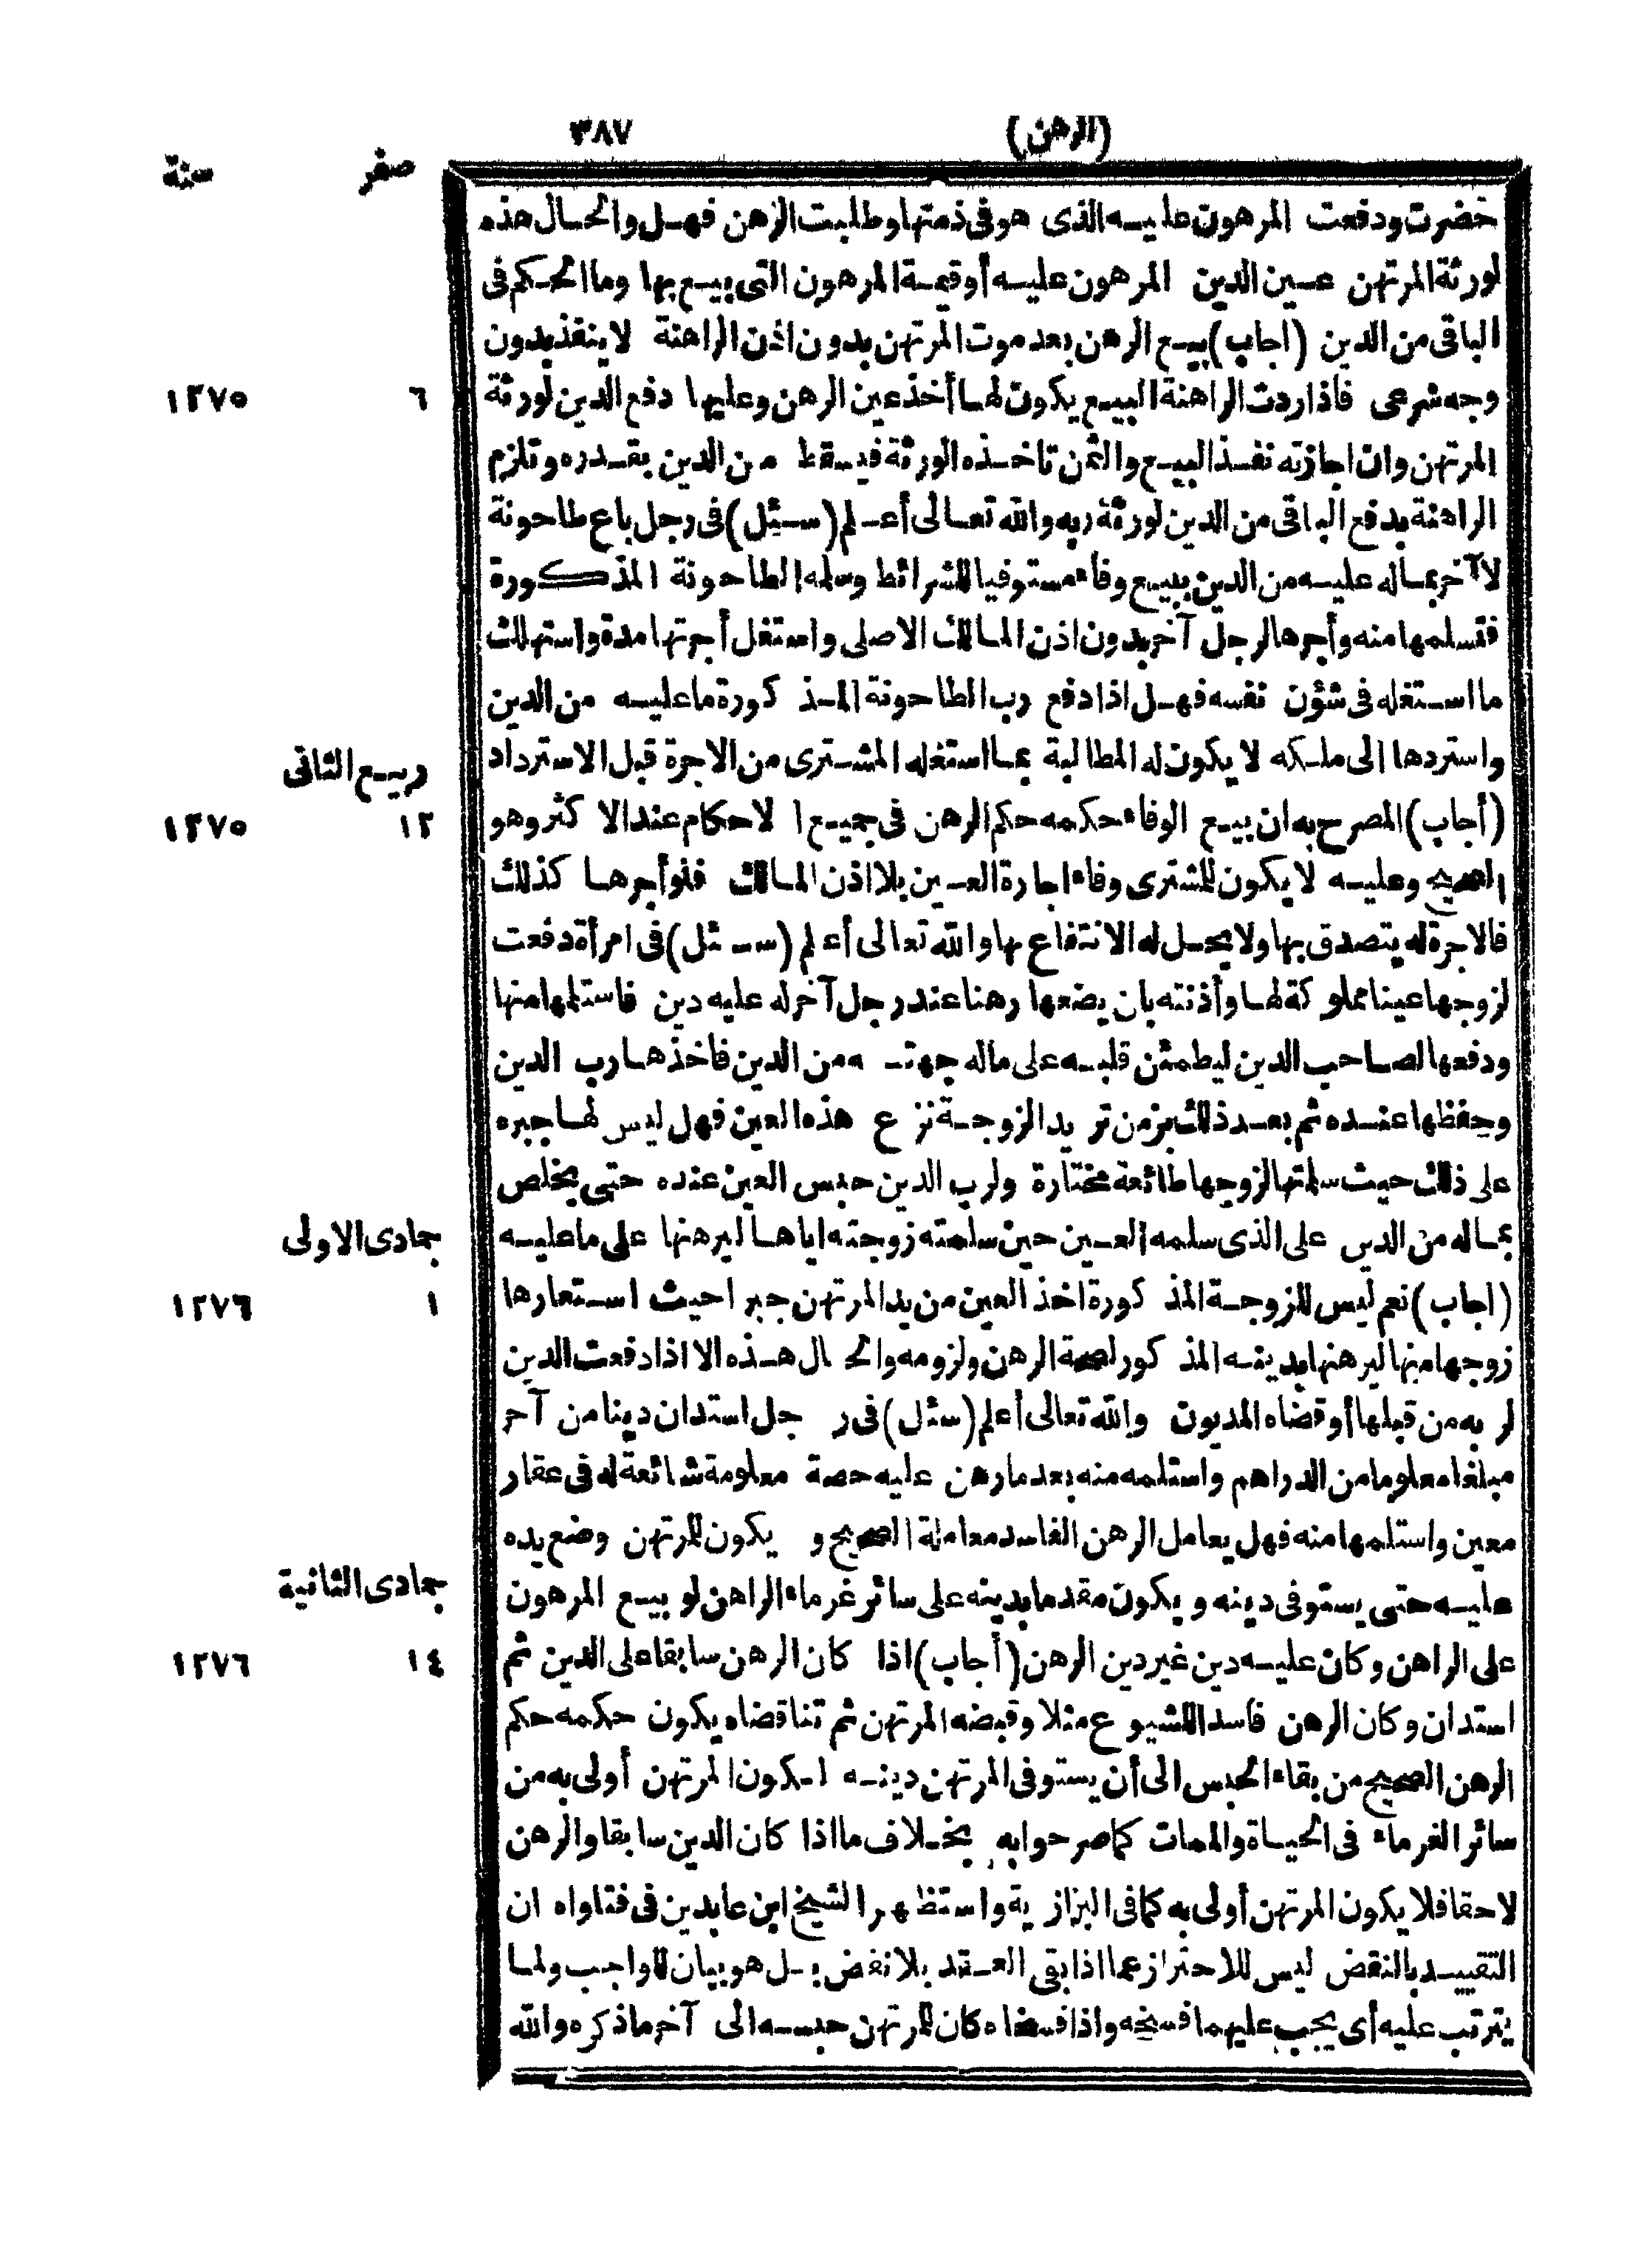 (الرهن) ٣٨٧
صفر سنة
حضرت ودفعت المرهون عليه الذى هو فى ذمتها وطلبت الرهن فهل والحال هذه
لورثة المرتهن عين الدين المرهون عليه أوقيمة المرهون التى بيع بها وما الحكم فى
الباقى من الدين (اجاب) بيع الرهن بعد موت المرتهن بدون اذن الراهنة لا ينفذ بدون
وجه شرعى فاذا ردت الراهنة البيع يكون لها أخذ عين الرهن وعليها دفع الدين لورثة ٦ ١٢٧٥
المرتهن وان اجازته نفذ البيع والثمن تاخذه الورثة فيسقط من الدين بقدره وتلزم
الراهنة بدفع الباقى من الدين لورثة ربه والله تعالى أعلم (سئل) فى رجل باع طاحونة
لآخر بماله عليه من الدين بيع وفاء مستوفيا للشرائط وسلمه الطاحونة المذكورة
فتسلمها منه وأجرها لرجل آخر بدون اذن المالك الاصلى واستغل أجرتها مدة واستهلك
ما استغله فى شؤن نفسه فهل اذا دفع رب الطاحونة المذكورة ما عليه من الدين
واستردها الى ملكه لا يكون له المطالبة بما استغله المشترى من الاجرة قبل الاسترداد
ربيع الثانى
(أجاب) المصرح به ان بيع الوفاء حكمه حكم الرهن فى جميع الاحكام عند الاكثر وهو ١٢ ١٢٧٥
الصحيح وعليه لا يكون للمشترى وفاء اجارة العين بلا اذن المالك فلو أجرها كذلك
فالاجرة له يتصدق بها ولا يحل له الانتفاع بها والله تعالى أعلم (سئل) فى امرأة دفعت
لزوجها عينا مملوكة لها وأذنته بان يضعها رهنا عند رجل آخر له عليه دين فاستلمها منها
ودفعها لصاحب الدين ليطمئن قلبه على ماله جهته من الدين فاخذها رب الدين
وحفظها عنده ثم بعد ذلك بزمن تريد الزوجة نزع هذه العين فهل ليس لها جبره
على ذلك حيث سلمتها لزوجها طائعة مختارة ولرب الدين حبس العين عنده حتى يخلص
بماله من الدين على الذى سلمه العين حين سلمته زوجته اياها ليرهنها على ما عليه
جمادى الاولى
(اجاب) نعم ليس للزوجة المذكورة اخذ العين من يد المرتهن جبرا حيث استعارها ١ ١٢٧٦
زوجها منها ليرهنها بدينه المذكور لصحة الرهن ولزومه والحال هذه الا اذا دفعت الدين
لربه من قبلها أوقضاه المديون والله تعالى أعلم (سئل) فى رجل استدان دينا من آخر
مبلغا معلوما من الدراهم واستلمه منه بعد ما رهن عليه حصة معلومة شائعة له فى عقار
معين واستلمها منه فهل يعامل الرهن الفاسد معاملة الصحيح ويكون للمرتهن وضع يده
عليه حتى يستوفى دينه ويكون مقدما بدينه على سائر غرماء الراهن لو بيع المرهون
جمادى الثانية
على الراهن وكان عليه دين غير دين الرهن (أجاب) اذا كان الرهن سابقا على الدين ثم ١٤ ١٢٧٦
استدان وكان الرهن فاسدا للشيوع مثلا وقبضه المرتهن ثم تناقضاه يكون حكمه حكم
الرهن الصحيح من بقاء الحبس الى أن يستوفى المرتهن دينه لكون المرتهن أولى به من
سائر الغرماء فى الحياة والممات كما صرحوا به بخلاف ما اذا كان الدين سابقا والرهن
لاحقا فلا يكون المرتهن أولى به كما فى البزازية واستظهر الشيخ ابن عابدين فى فتاواه ان
التقييد بالنقض ليس للاحتراز عما اذا بقى العقد بلا نقض بل هو بيان للواجب ولما
يترتب عليه أى يجب عليهما فسخه واذا فسخاه كان للمرتهن حبسه الى آخر ما ذكره والله